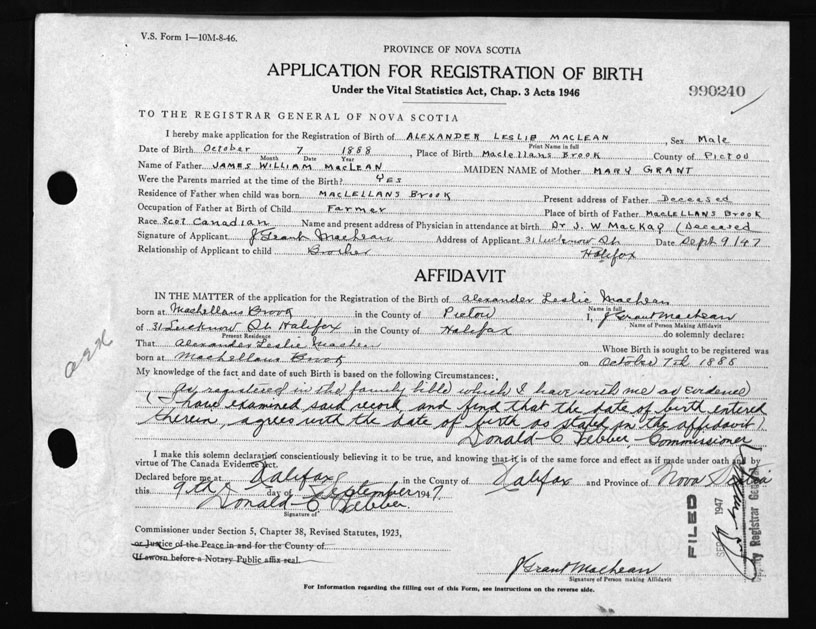 V.S. Form 1—10M-8-46.
PROVINCE OF NOVA SCOTIA
APPLICATION FOR REGISTRATION OF BIRTH
990240
Under the Vital Statistics Act, Chap. 3 Acts 1946
TO THE REGISTRAR GENERAL OF NOVA SCOTIA
I hereby make application for the Registration of Birth of ALEXANDER LESLIE MACLEAN, Sex Male
Print Name in full
Date of Birth October 7 1888, Place of Birth Maclellans Brook County of Pictou
Month Date Year
Name of Father JAMES WILLIAM MACLEAN MAIDEN NAME of Mother MARY GRANT
Were the Parents married at the time of the Birth? YES
Residence of Father when child was born MACLELLANS BROOK Present address of Father Deceased
Occupation of Father at Birth of Child Farmer Place of birth of Father MACLELLANS BROOK
Race Scot Canadian Name and present address of Physician in attendance at birth Dr J. W MacKay (Deceased
Signature of Applicant J Grant MacLean Address of Applicant 31 Lucknow St. Date Sept 9/47
Relationship of Applicant to child Brother Halifax
AFFIDAVIT
IN THE MATTER of the application for the Registration of the Birth of Alexander Leslie MacLean
Name in full
born at MacLellans Brook in the County of Pictou I, J Grant MacLean
Name of Person Making Affidavit
of 31 Lucknow St. Halifax in the County of Halifax do solemnly declare:
Present Residence
That Alexander Leslie MacLean Whose Birth is sought to be registered was
born at MacLellans Brook on October 7th 1888
My knowledge of the fact and date of such Birth is based on the following Circumstances:
as registered in the family bible which I have with me as evidence
(I have examined said record and find that the date of birth entered
therein, agrees with the date of birth as stated in the affidavit).
Donald C Webber - Commissioner
I make this solemn declaration conscientiously believing it to be true, and knowing that it is of the same force and effect as if made under oath and by
virtue of The Canada Evidence Act.
Declared before me at Halifax in the County of Halifax and Province of Nova Scotia
this 9th day of September 1947
Donald C Webber
Signature of
Commissioner under Section 5, Chapter 38, Revised Statutes, 1923,
or Justice of the Peace in and for the County of
(If sworn before a Notary Public affix seal.
J Grant MacLean
Signature of Person making Affidavit
For Information regarding the filling out of this Form, see instructions on the reverse side.
FILED
1947
Registrar General